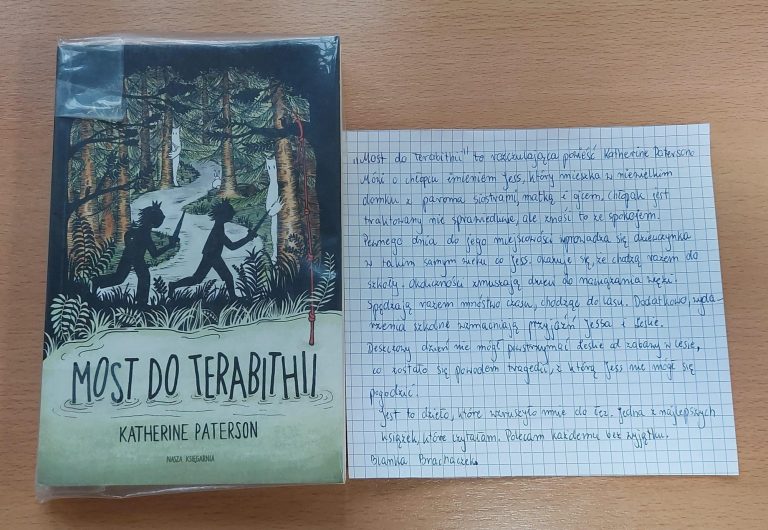 MOST DO TERABITHII
KATHERINE PATERSON
NASZA KSIĘGARNIA
„Most do Terabithii" to rozczulająca powieść Katherine Paterson.
Mówi o chłopcu imieniem Jess, który mieszka w niewielkim
domku z paroma siostrami, matką i ojcem, chłopak jest
traktowany nie sprawiedliwie, ale znosi to ze spokojem.
Pewnego dnia do jego miejscowości wprowadza się dziewczynka
w takim samym wieku co Jess. Okazuje się, że chodzą razem do
szkoły. Okoliczności zmuszają dzieci do nawiązania więzi.
Spędzają razem mnóstwo czasu, chodząc do lasu. Dodatkowo, wyda-
rzenia szkolne wzmacniają przyjaźń Jessa i Leslie.
Deszczowy dzień nie mógł powstrzymać Leslie od zabawy w lesie,
co zostało się powodem tragedii, z którą Jess nie mógł się
pogodzić.
Jest to dzieło, które wzruszyło mnie do łez. Jedna z najlepszych
książek, które czytałam. Polecam każdemu bez wyjątku.
Blanka Brachaczek